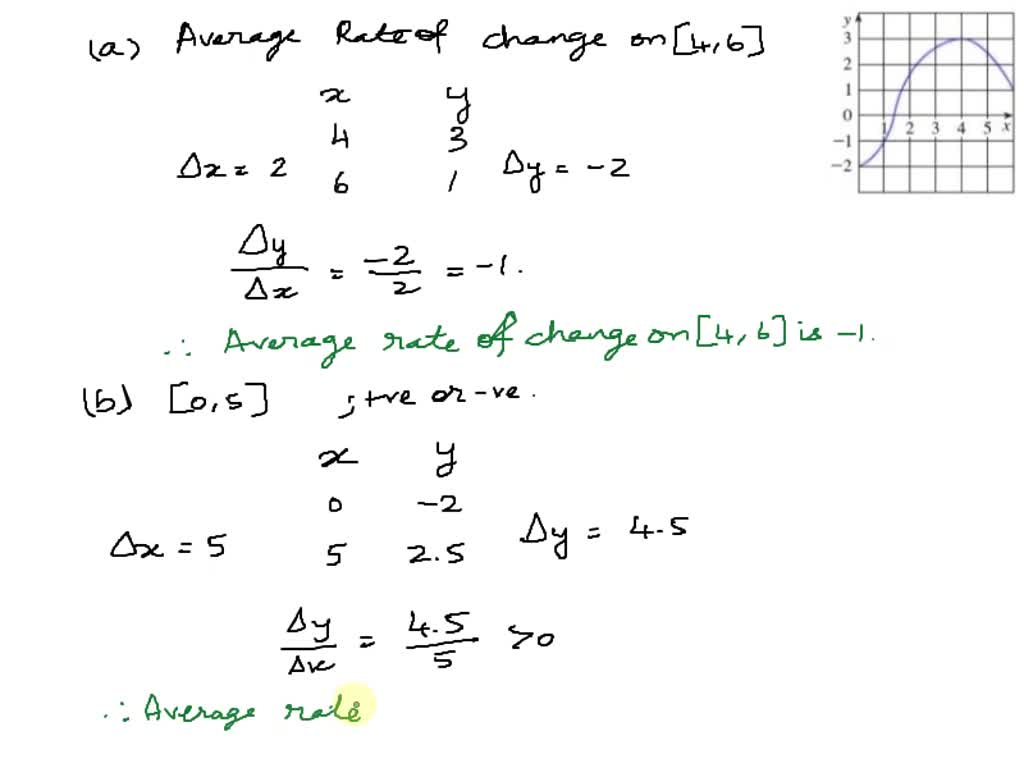 (a) Average Rate of change on [4,6]
x y
4 3
Δx = 2 Δy = -2
6 1
Δy/Δx = -2/2 = -1.
∴ Average rate of change on [4,6] is -1.
(b) [0,5] ; +ve or -ve.
x y
0 -2
Δx = 5 5 2.5 Δy = 4.5
Δy/Δx = 4.5/5 >0
∴ Average rate
y
3
2
1
0
1 2 3 4 5 x
-1
-2